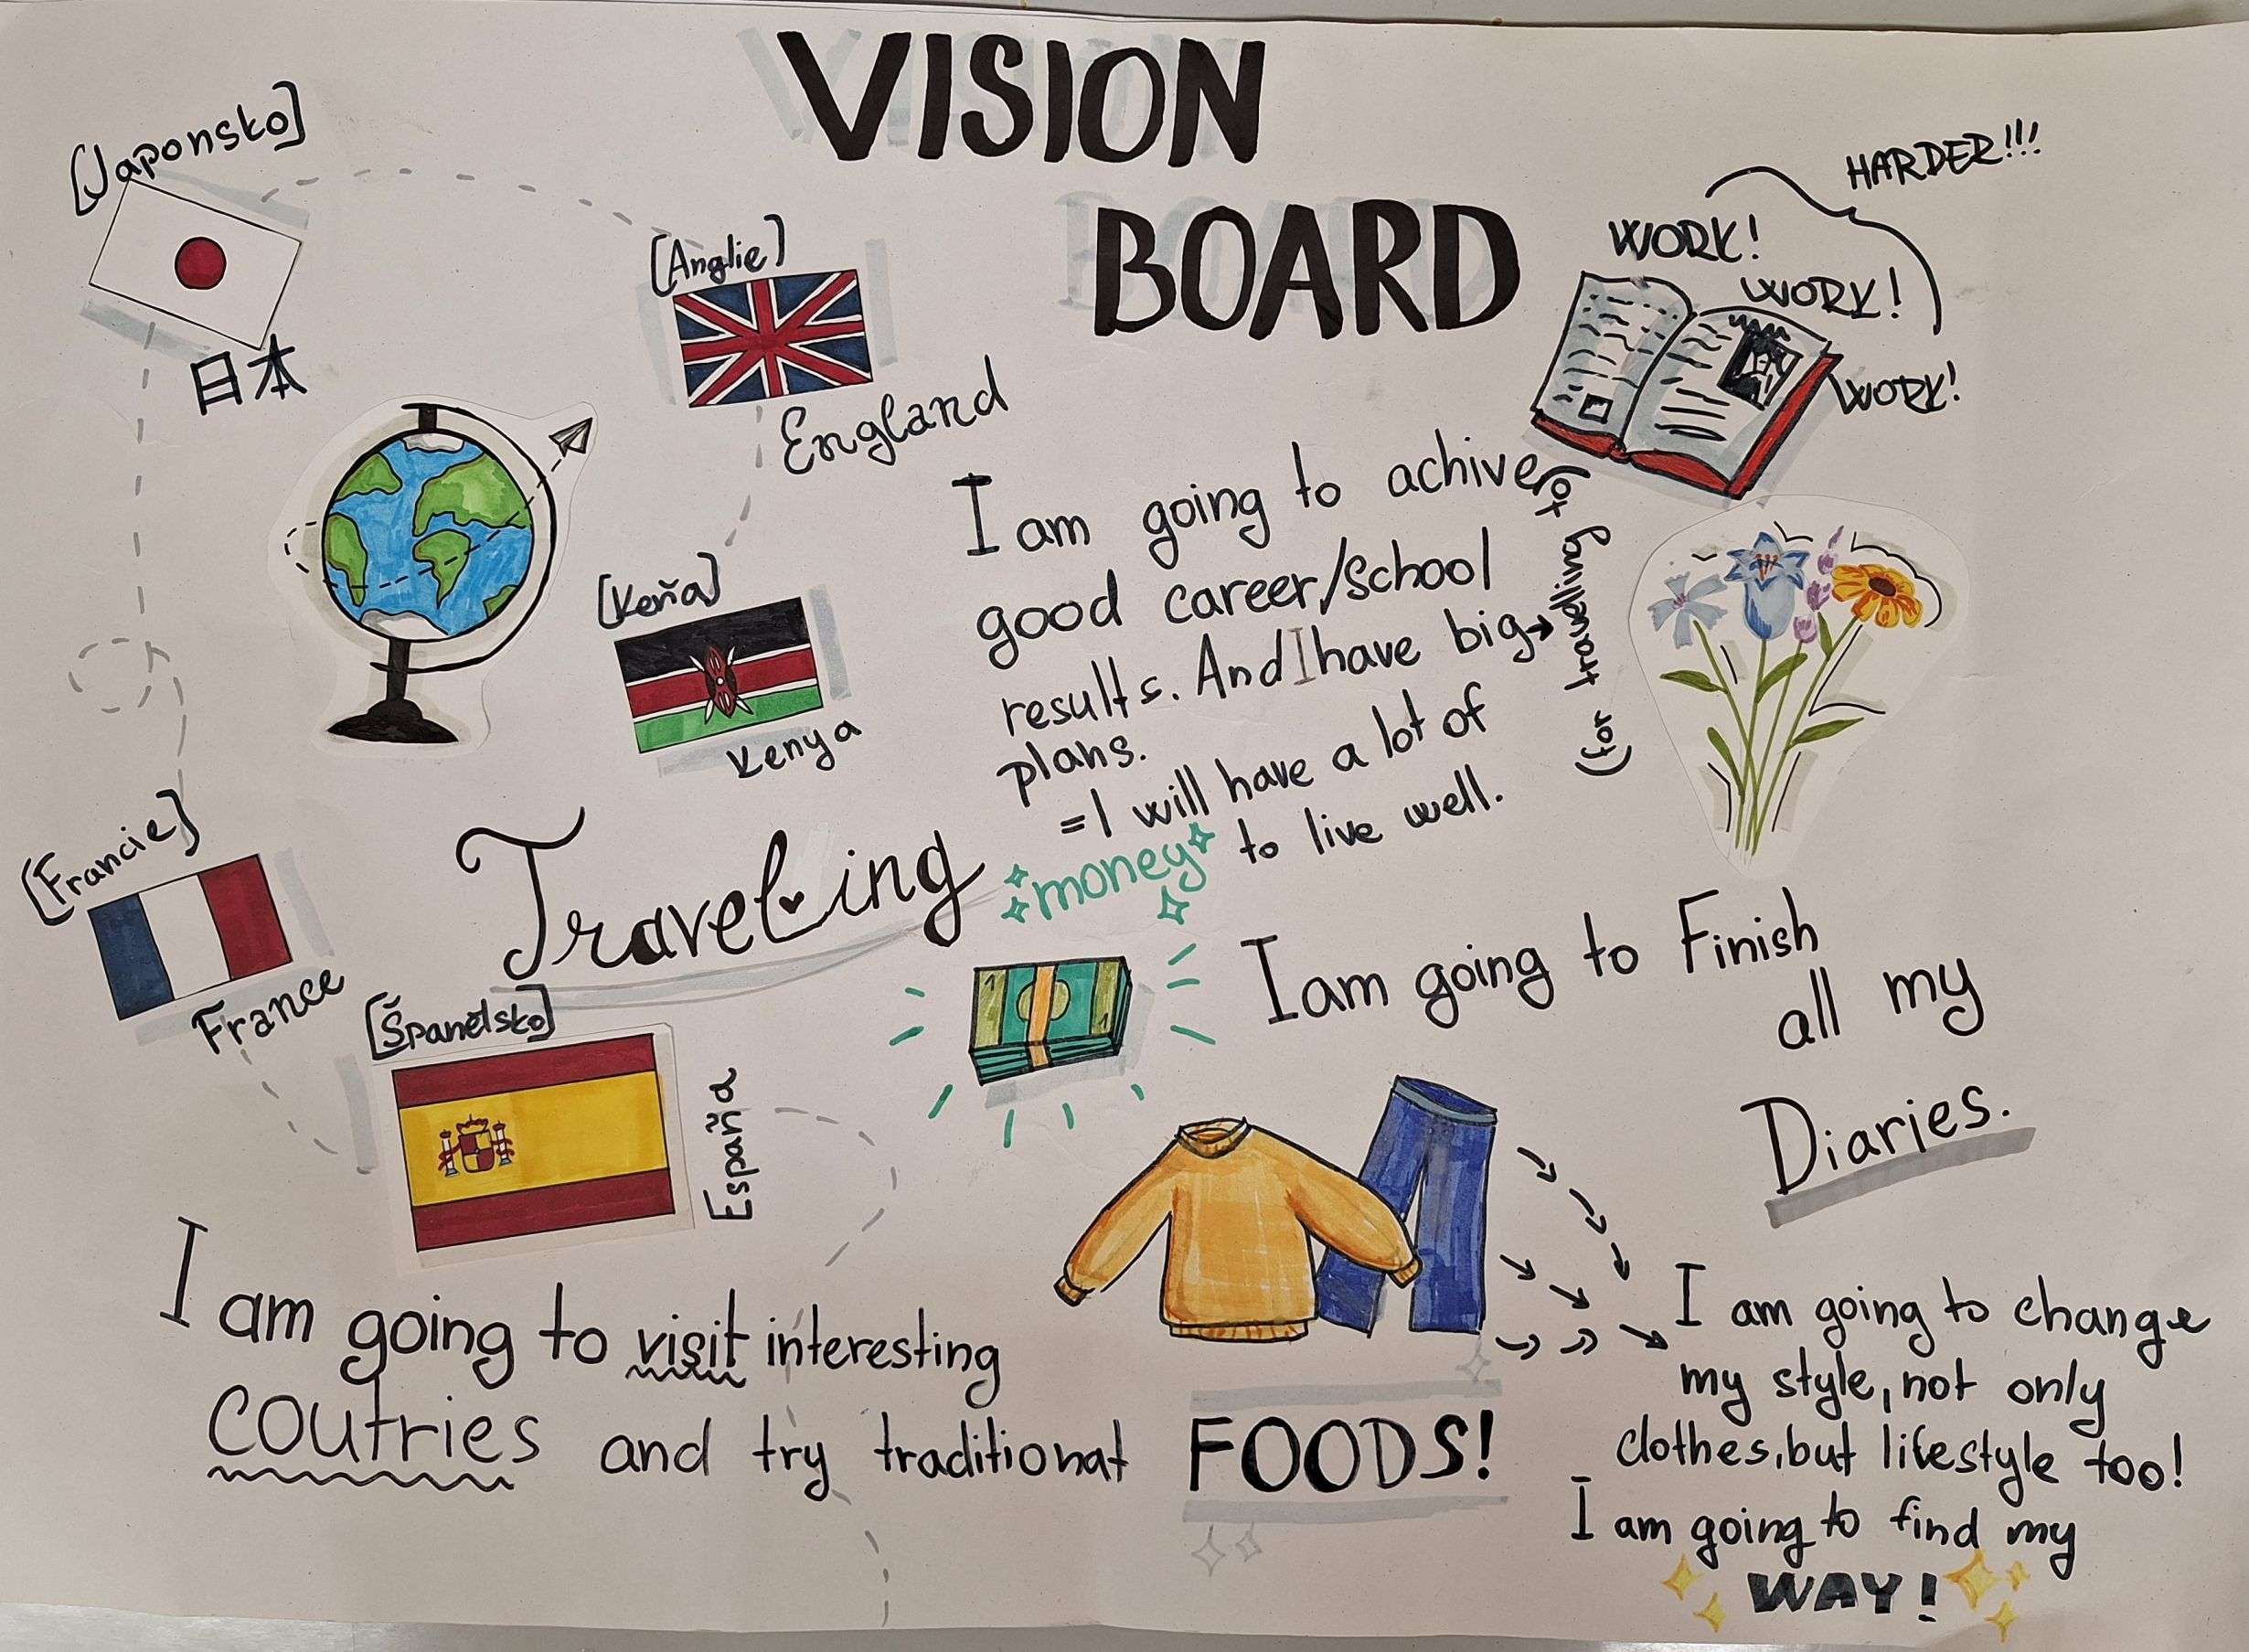 VISION
BOARD
[Japonsko]
日本
[Anglie]
England
[Keňa]
Kenya
[Francie]
France
[Španělsko]
España
Traveling
HARDER!!!
WORK!
WORK!
WORK!
I am going to achive
good career/school
results. And I have big→
plans.
(for travelling too)
=I will have a lot of
money to live well.
I am going to Finish
all my
Diaries.
I am going to visit interesting
coutries and try traditional FOODS!
I am going to change
my style, not only
clothes, but lifestyle too!
I am going to find my
WAY!